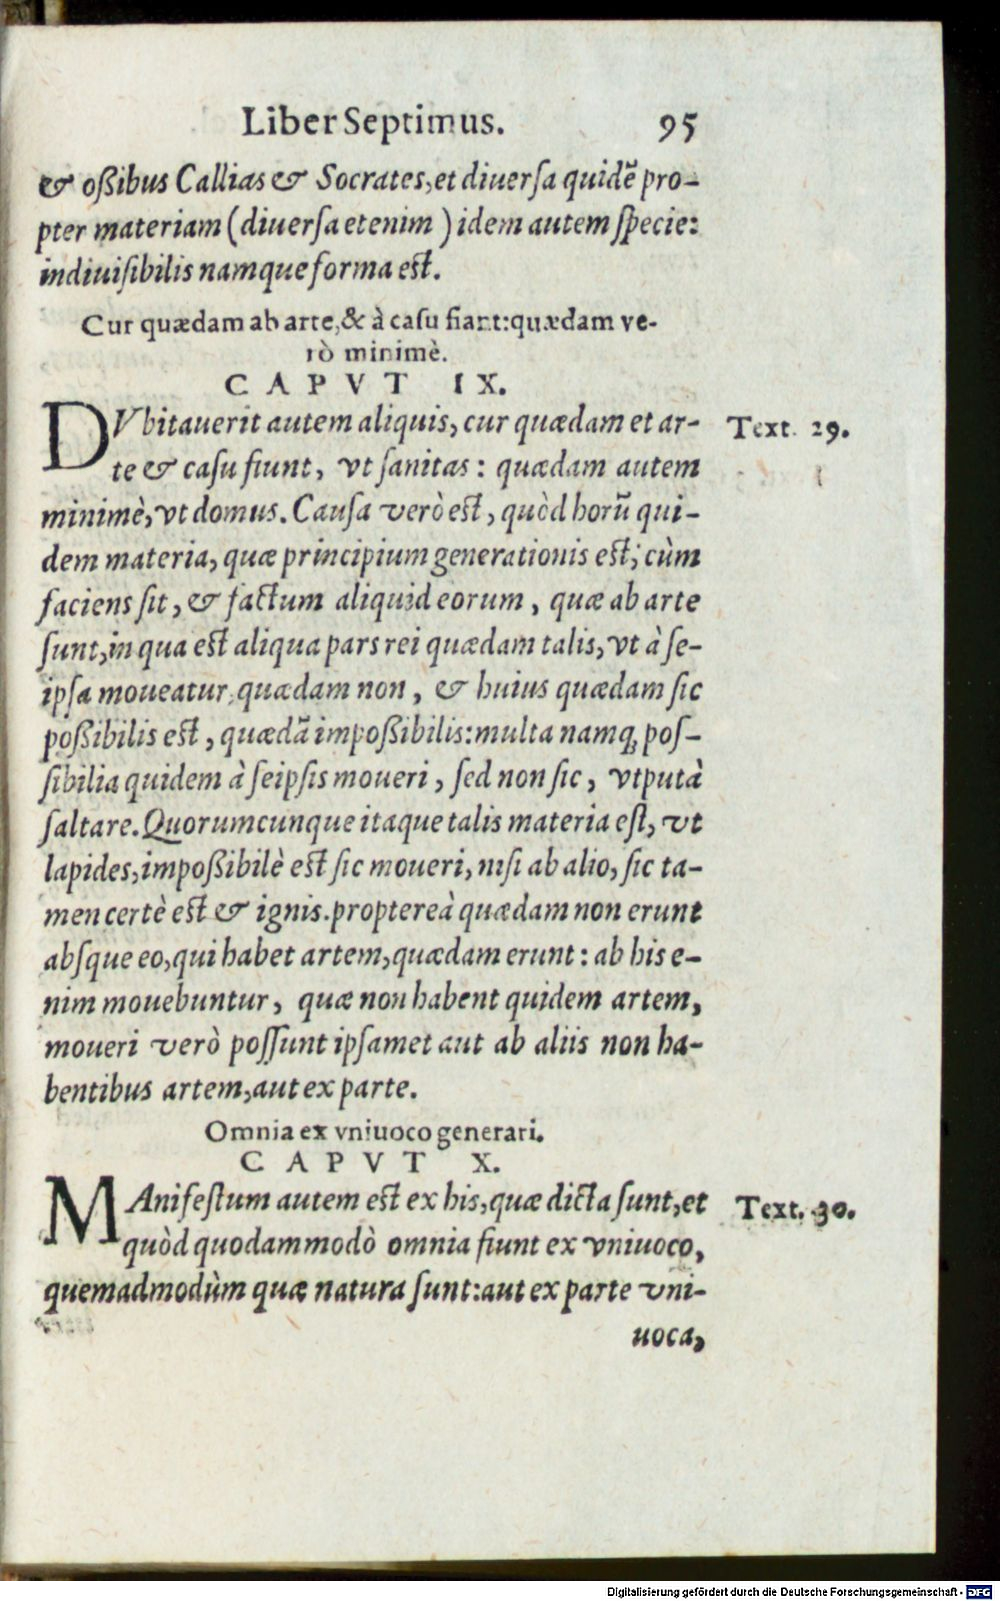 Liber Septimus. 95
& oßibus Callias & Socrates, et diuerſa quidē pro-
pter materiam (diuerſa etenim) idem autem ſpecie:
indiuiſibilis namque forma eſt.
Cur quædam ab arte, & à caſu fiant: quædam ve-
rò minimè.
CAPVT IX.
DVbitauerit autem aliquis, cur quædam et ar- Text. 29.
te & caſu fiunt, vt ſanitas: quædam autem
minimè, vt domus. Cauſa verò eſt, quòd horū qui-
dem materia, quæ principium generationis eſt; cùm
faciens ſit, & factum aliquid eorum, quæ ab arte
ſunt, in qua eſt aliqua pars rei quædam talis, vt à ſe-
ipſa moueatur, quædam non, & huius quædam ſic
poßibilis eſt, quædā impoßibilis: multa namq; poſ-
ſibilia quidem à ſeipſis moueri, ſed non ſic, vtputà
ſaltare. Quorumcunque itaque talis materia eſt, vt
lapides, impoßibilè eſt ſic moueri, niſi ab alio, ſic ta-
men certè eſt & ignis. proptereà quædam non erunt
abſque eo, qui habet artem, quædam erunt: ab his e-
nim mouebuntur, quæ non habent quidem artem,
moueri verò poſſunt ipſamet aut ab aliis non ha-
bentibus artem, aut ex parte.
Omnia ex vniuoco generari.
CAPVT X.
MAnifeſtum autem eſt ex his, quæ dicta ſunt, et Text. 30.
quòd quodammodò omnia fiunt ex vniuoco,
quemadmodùm quæ natura ſunt: aut ex parte vni-
uoca,
Digitalisierung gefördert durch die Deutsche Forschungsgemeinschaft - DFG